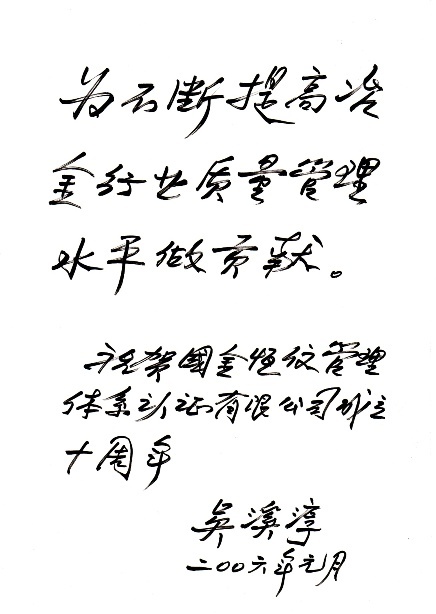 为不断提高冶
金行业质量管理
水平做贡献。
祝贺国金恒信管理
体系认证有限公司成立
十周年
吴溪淳
二〇〇六年元月